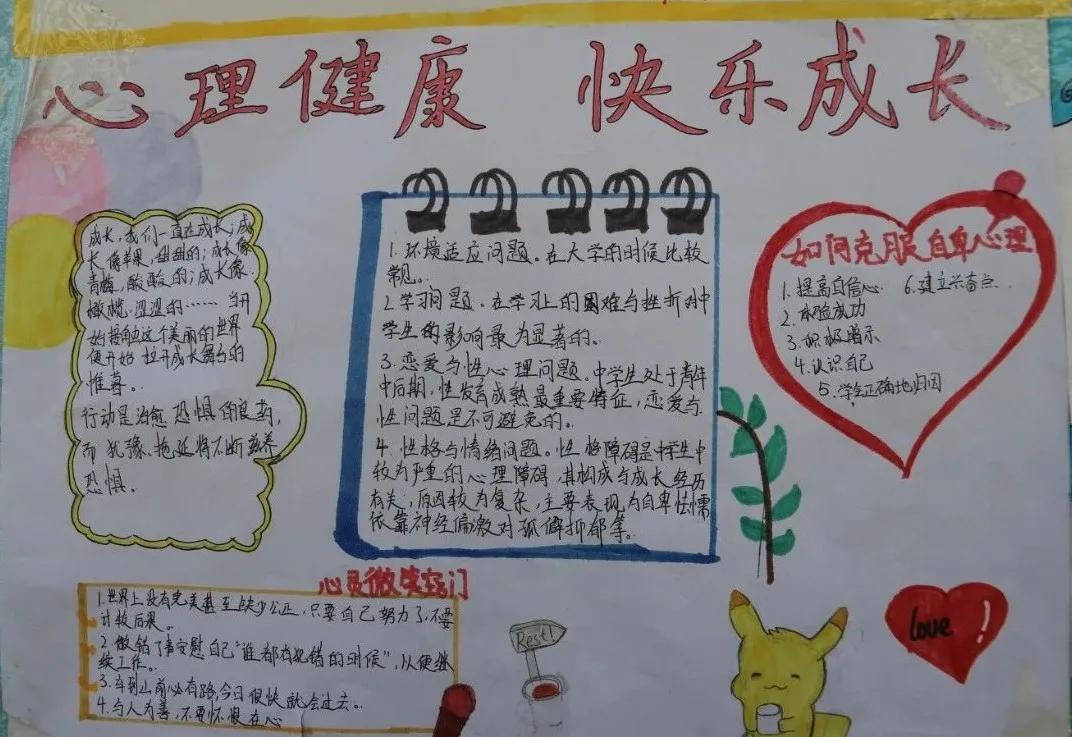 心理健康 快乐成长
成长,我们一直在成长;成
长像苹果,甜甜的;成长像
青柠,酸酸的;成长像
橄榄,涩涩的……当开
始接触这个美丽的世界
便开始拉开成长舞台的
帷幕。
行动是治愈恐惧的良药,
而犹豫、拖延将不断滋养
恐惧.
1.环境适应问题。在大学的时候比较
常见。
2.学习问题.在学习上的困难与挫折对中
学生的影响最为显著的。
3.恋爱与性心理问题.中学生处于青年
中后期,性发育成熟最重要特征,恋爱与
性问题是不可避免的。
4.性格与情绪问题。性格障碍是中学生中
较为严重的心理障碍,其构成与成长经历
有关,原因较为复杂,主要表现为自卑怯懦
依靠神经偏激对孤僻抑郁等。
如何克服自卑心理
1.提高自信心 6.建立兴奋点.
2.体验成功
3.积极暗示
4.认识自己
5.学会正确地归因
心灵微笑窍门
1.世界上没有完美甚至缺少公正,只要自己努力了,不要
计较后果。
2.做错了事安慰自己“谁都有犯错的时候”,以便继
续工作。
3.车到山前必有路,今日很快就会过去。
4.与人为善,不要怀恨在心
Rest!
love